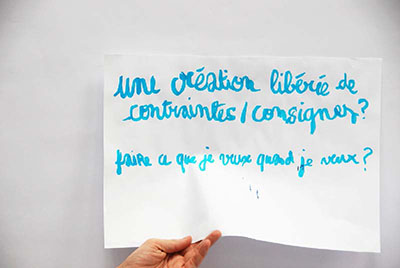 une création libérée de
contraintes/consignes?
faire ce que je veux quand je veux?